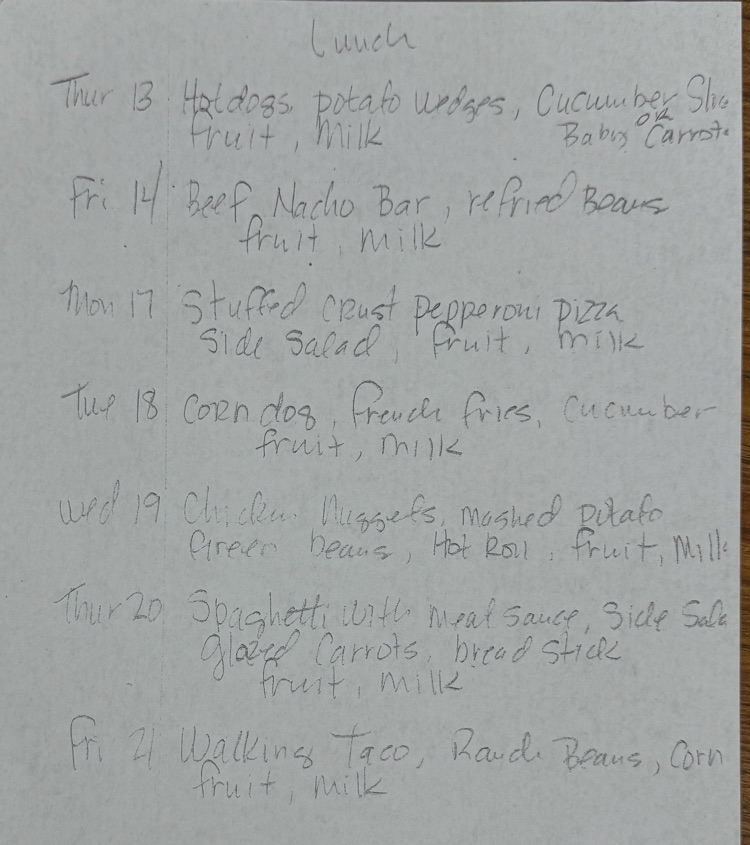 Lunch
Thur 13 Hotdogs, potato wedges, Cucumber Slic
or
fruit, Milk Baby Carrots
Fri 14 Beef Nacho Bar, refried Beans
fruit, milk
Mon 17 Stuffed Crust pepperoni pizza
Side Salad, fruit, milk
Tue 18 Corn dog, french fries, Cucumber
fruit, milk
Wed 19 Chicken Nuggets, mashed potato
Green beans, Hot Roll, fruit, Milk
Thur 20 Spaghetti with meat sauce, Side Sala
glazed Carrots, bread stick
fruit, milk
Fri 21 Walking Taco, Ranch Beans, Corn
fruit, milk